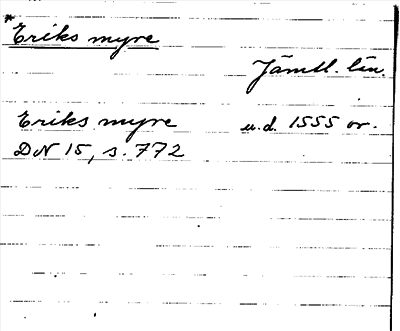 *Eriks myre
Jämtl. län.
Eriks myre u.d. 1555 or.
DN 15, s. 772